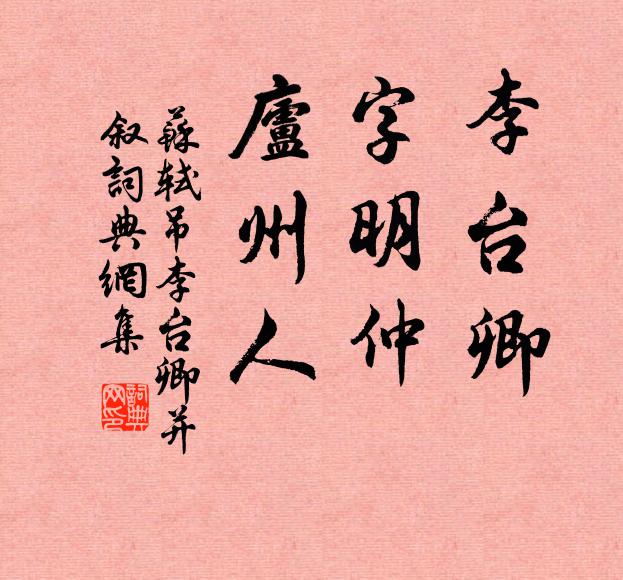 李台卿
字明仲
廬州人
蘇軾吊李台卿并
叙詞典網集
詞典
网印